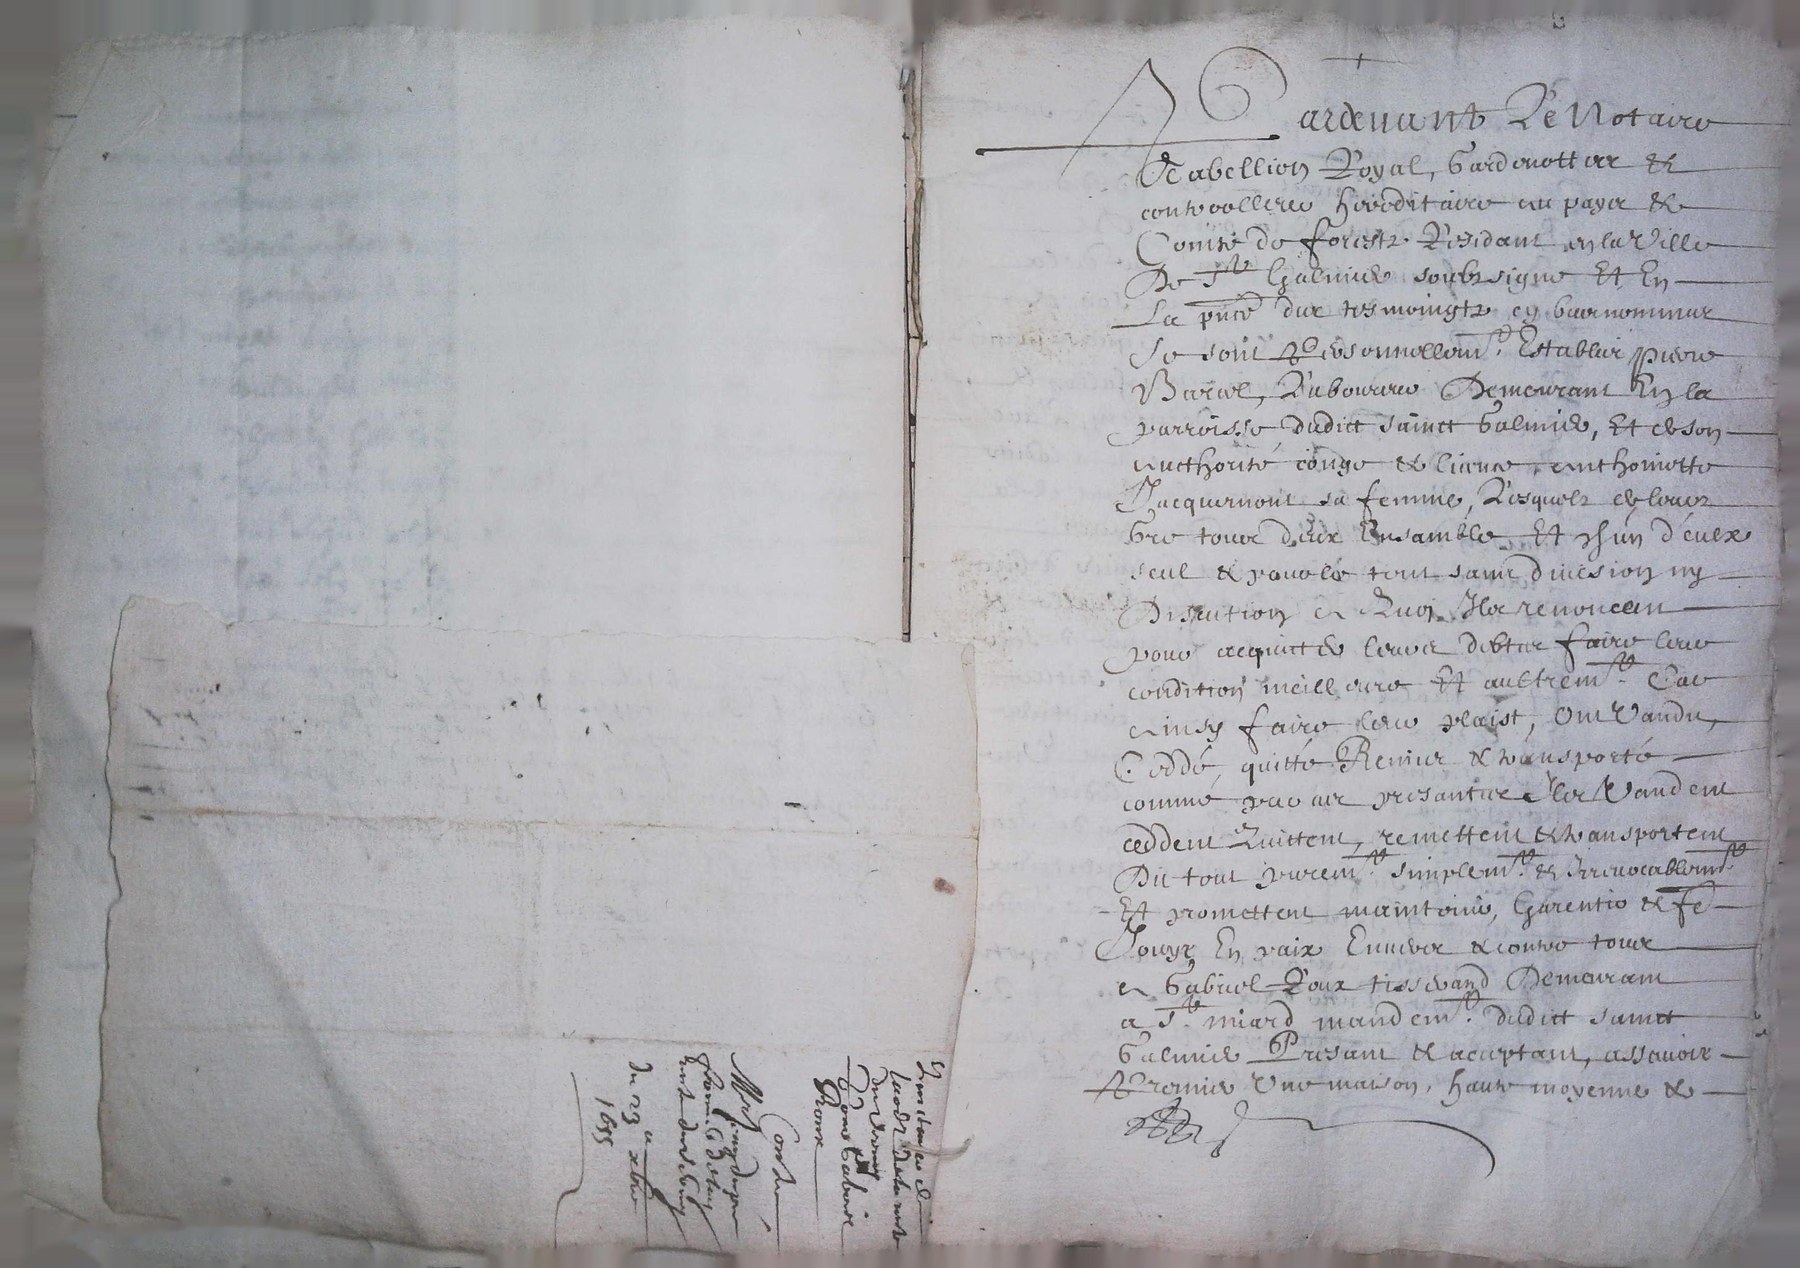 Pardevant Le Notaire
Tabellion Royal, Gardenotter &
controolleur hereditaire au payx &
Comté de forestz Residant en la Ville
De St Galmier soubzsigné Et En
La pñce des tesmoingtz cy bas nommez
Se sont Personnellemt. Establis Pierre
Laboureur Demeurant En la
parroisse dudict sainct Galmier, Et de son
aucthorité congé & licence, anthoinette
Jacquemont sa femme, Lesquelz de leurs
Gré tous deux Ensamble Et l'un d'eulx
seul & pour le tout sans division ny
Discution a Quoy Ils renoncent
pour acquicter leurs debtes faire leur
condition meilleure Et aultremt. Car
ainsy faire leur plaist, Ont Vandu,
Ceddé, quitté Remis & transporté
comme par ces presantes Ils Vandent
ceddent Quittent, remettent & transportent
Du tout puremt. simplemt. & Irrevocablemt.
Et promettent maintenir, Garentir & fe
Jouyr En paix Envers & contre tous
a Gabriel Roux tisserand Demeurant
a St. miard mandemt. dudict sainct
Galmier Presant & acceptant, assavoir
Premier Une maison, haute moyenne &
Roux
Contre
du 23e xbre
1655